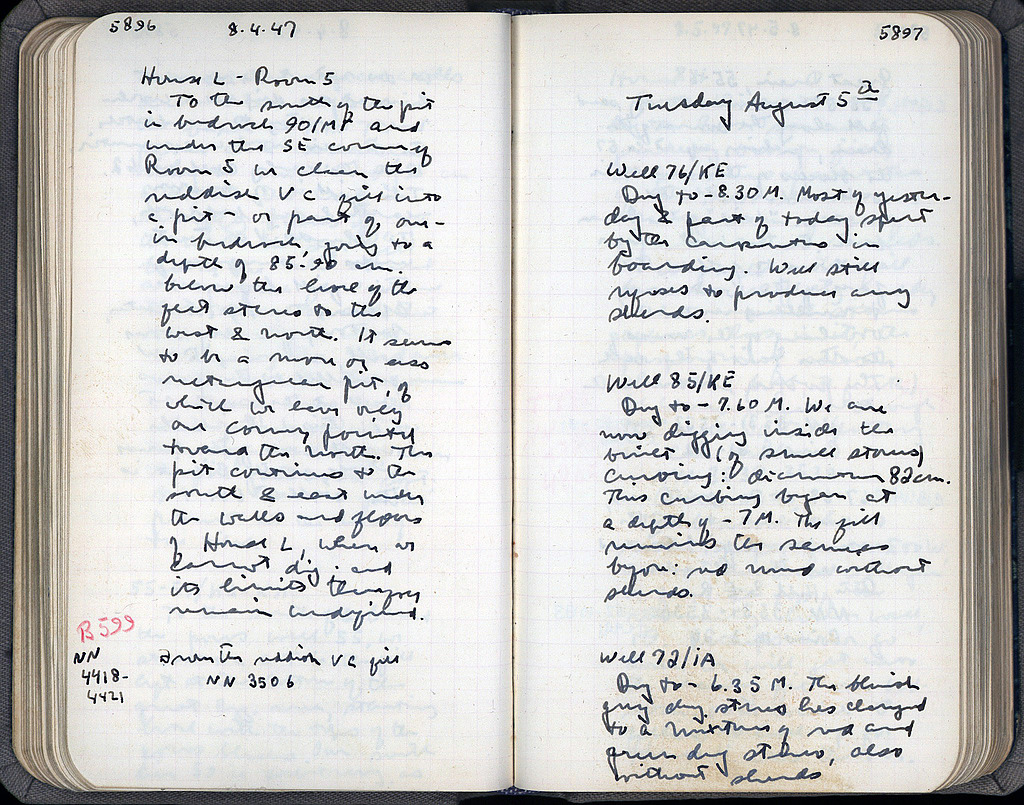 5896
8.4.47
House L - Room 5
To the south of the pit
in bedrock 90/MP and
under the SE corner of
Room 5 we clean the
reddish VC fill into
a pit - or part of one -
in bedrock, going to a
depth of 85-90 cm.
below the level of the
field stones to the
west & north. It seems
to be a more or less
rectangular pit, of
which we have only
one corner pointed
toward the north. The
pit continues to the
south & east under
the walls and floors
of House L, where we
cannot dig: and
its limits therefore
remain undefined.
B 599
NN
4418-
4421
From the reddish VC fill
NN 3506
5897
Tuesday August 5th
Well 76/KE
Dug to - 8.30 M. Most of yester-
day & part of today spent
by the carpenters in
boarding. Well still
refuses to produce any
sherds.
Well 85/KE
Dug to - 7.60 M. We are
now digging inside the
built (of small stones)
curbing: diameter 82 cm.
This curbing began at
a depth of - 7 M. The fill
remains the same as
before: red mud without
sherds.
Well 72/IA
Dug to - 6.35 M. The bluish
grey dug stereo has changed
to a mixture of red and
green dug stereo, also
without sherds.